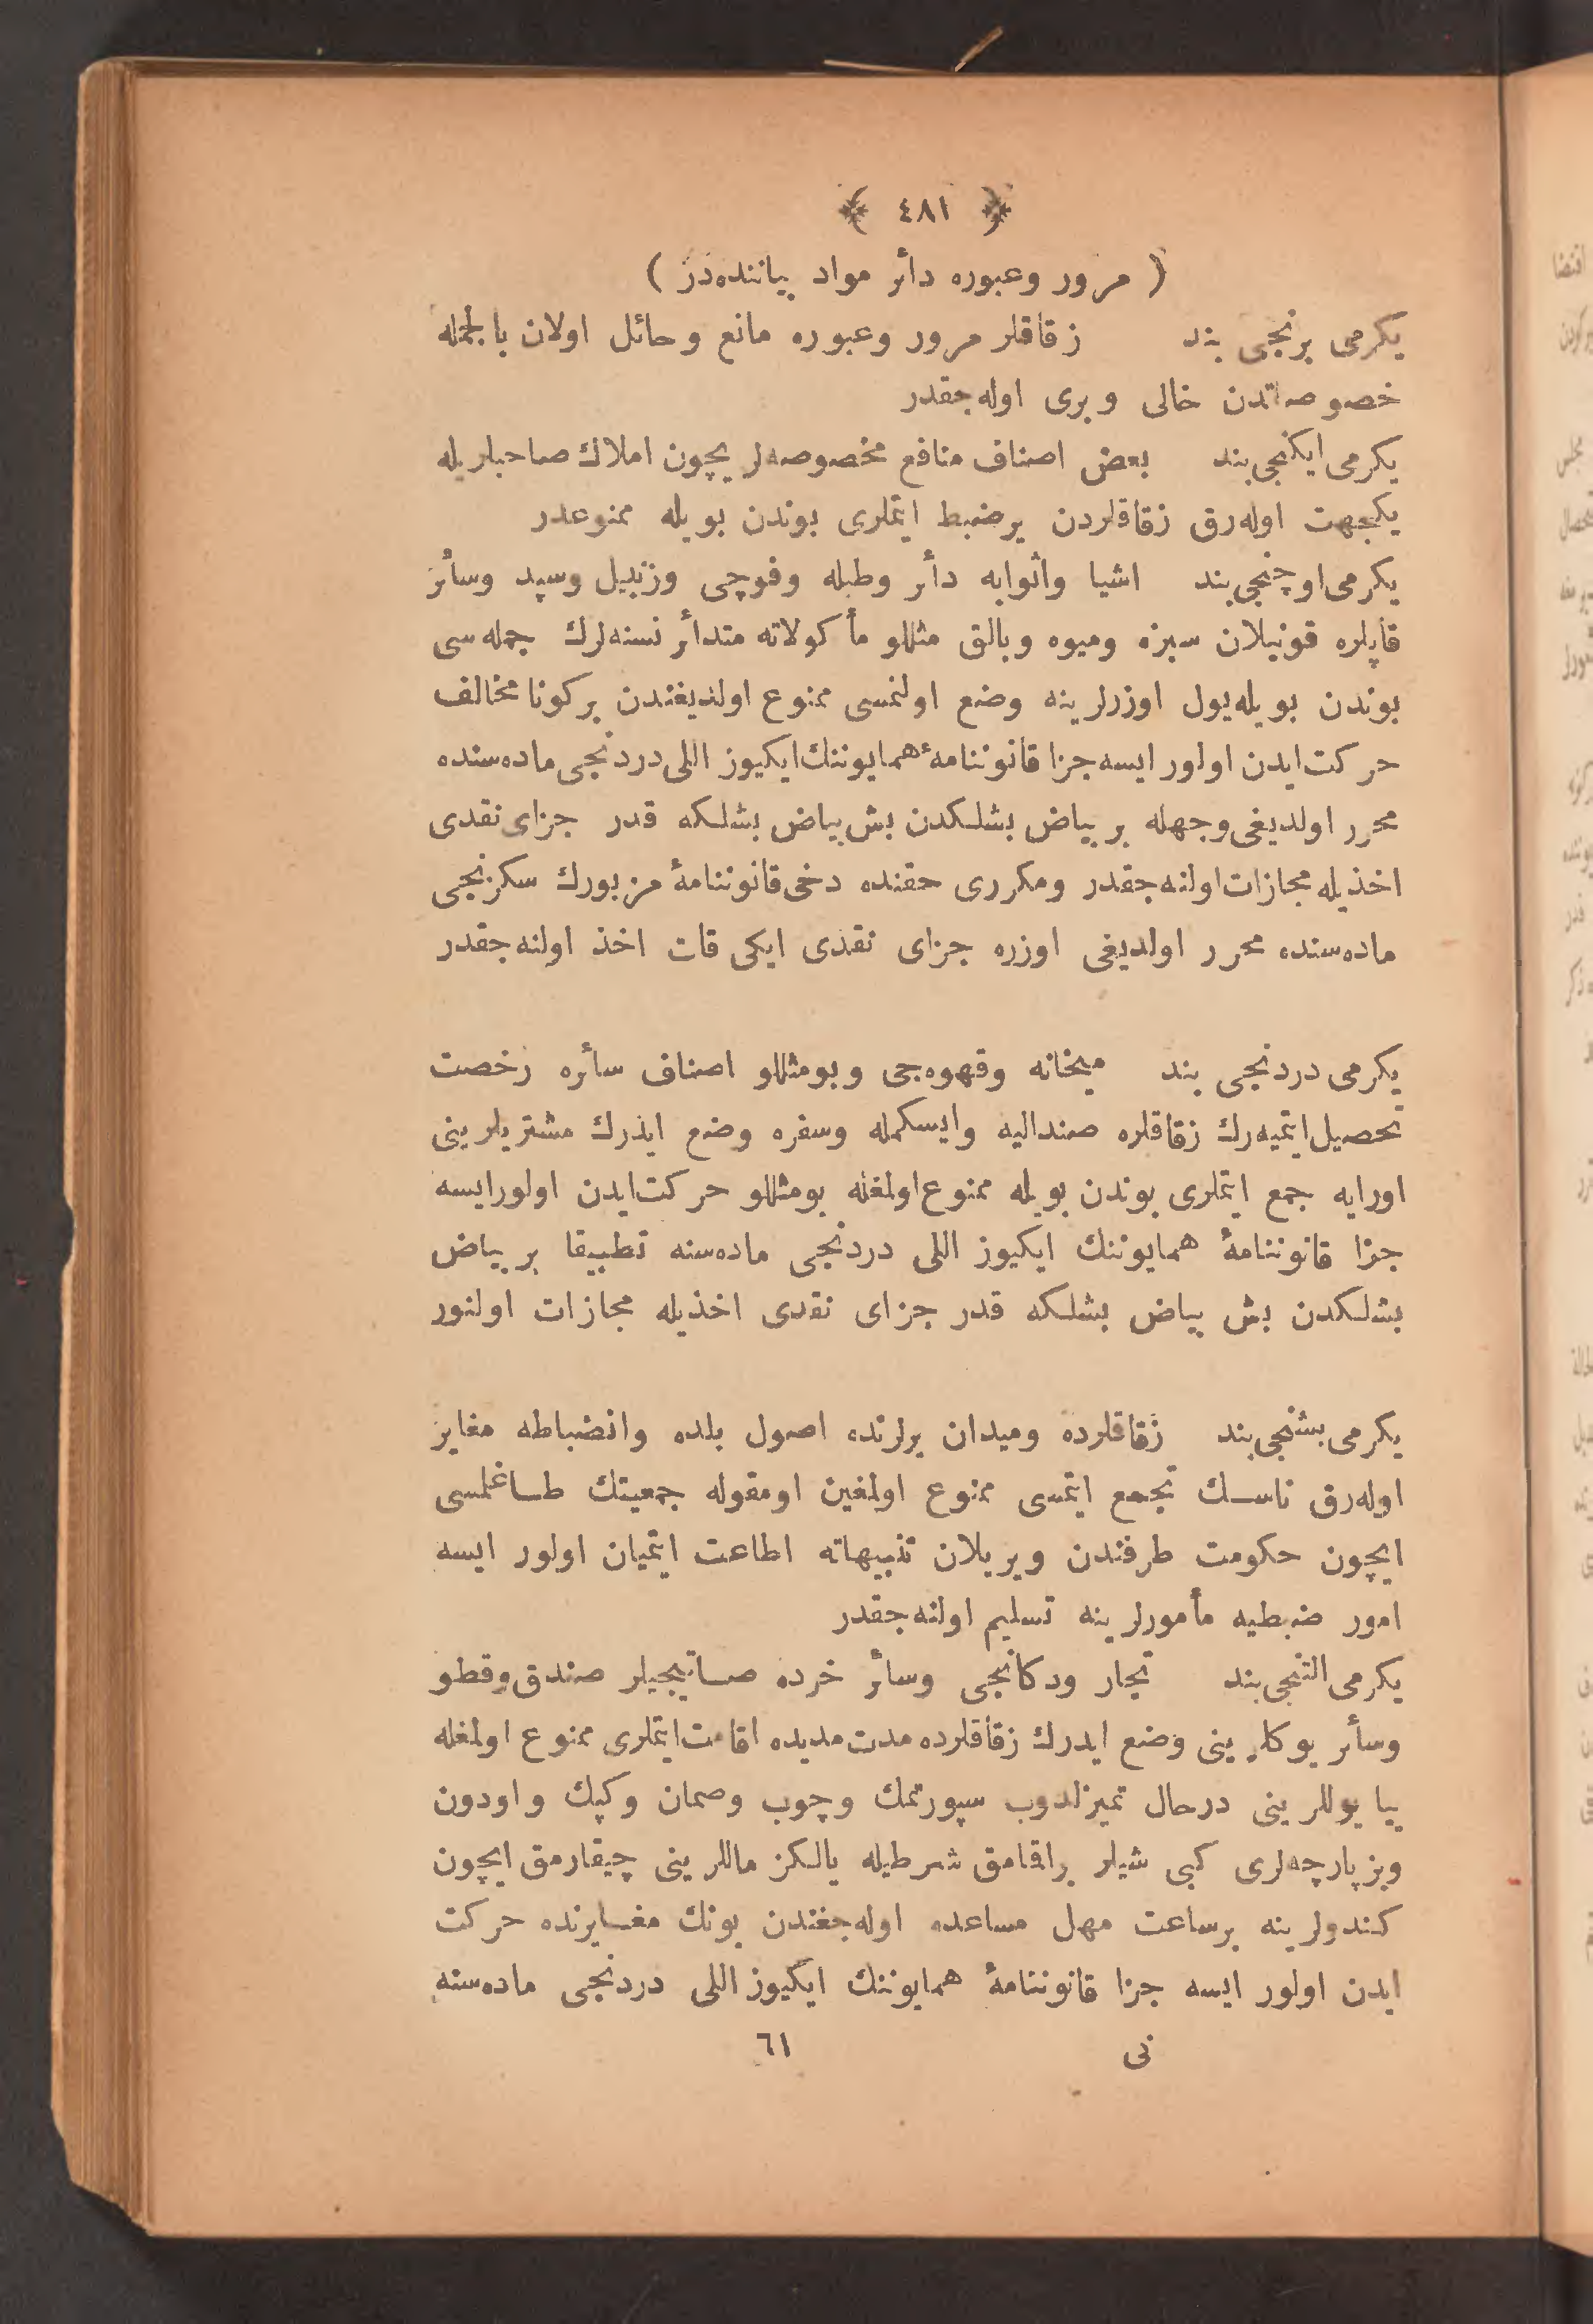 ٤٨١
( مرور وعبوره دأر مواد بیاننده‌در )
یكرمی برنجی بند زقاقلر مرور وعبوره مانع وحائل اولان بالجمله
خصوصاتدن خالی وبری اوله‌جقدر
یكرمی ایكنجی بند بعض اصناف منافع مخصوصه‌لریچون املاك صاحبلریله
یكجهت اوله‌رق زقاقلردن یرضبط ایتملری بوندن بویله ممنوعدر
یكرمی اوچنجی بند اشیا واثوابه دأر وطبله وفوچی وزنبیل وسپد وسأر
قاپلره قونیلان سبزه ومیوه وبالق مثللو مأكولاته متدأر نسنه‌لرك جمله‌سی
بوندن بویله یول اوزرلرینه وضع اولنمسی ممنوع اولدیغندن بركونا مخالف
حركت ایدن اولور ایسه جزا قانوننامهٔ همایوننك ایكیوز اللی دردنجی ماده‌سنده
محرر اولدیغی وجهله بر بیاض بشلكدن بش بیاض بشلكه قدر جزای نقدی
اخذیله مجازات اولنه‌جقدر ومكرری حقنده دخی قانوننامهٔ مزبورك سكزنجی
ماده‌سنده محرر اولدیغی اوزره جزای نقدی ایكی قات اخذ اولنه‌جقدر
یكرمی دردنجی بند میخانه وقهوه‌جی وبومثللو اصناف سأره رخصت
تحصیل ایتمیه‌رك زقاقلره صندالیه وایسكمله وسفره وضع ایدرك مشتریلرینی
اورایه جمع ایتملری بوندن بویله ممنوع اولمغله بومثللو حركت ایدن اولور ایسه
جزا قانوننامهٔ همایوننك ایكیوز اللی دردنجی ماده‌سنه تطبیقا بر بیاض
بشلكدن بش بیاض بشلكه قدر جزای نقدی اخذیله مجازات اولنور
یكرمی بشنجی بند زقاقلرده ومیدان یرلرنده اصول بلده وانضباطه مغایر
اوله‌رق ناسك تجمع ایتمسی ممنوع اولمغین اومقوله جمعیتك طاغلمسی
ایچون حكومت طرفندن ویریلان تنبیهاته اطاعت ایتمیان اولور ایسه
امور ضبطیه مأمورلرینه تسلیم اولنه‌جقدر
یكرمی التنجی بند تجار ودكانجی وسأر خرده صاتیجیلر صندق وقطو
وسأر یوكلرینی وضع ایدرك زقاقلرده مدت مدیده اقامت ایتملری ممنوع اولمغله
یبا یوللرینی درحال تمیزلدوب سپورتمك وچوب وصمان وكپك واودون
وبز پارچه‌لری كبی شیلر براقامق شرطیله یالكز ماللرینی چیقارمق ایچون
كندولرینه برساعت مهل مساعده اوله‌جغندن بونك مغایرنده حركت
ایدن اولور ایسه جزا قانوننامهٔ همایوننك ایكیوز اللی دردنجی ماده‌سنه
نی ٦١